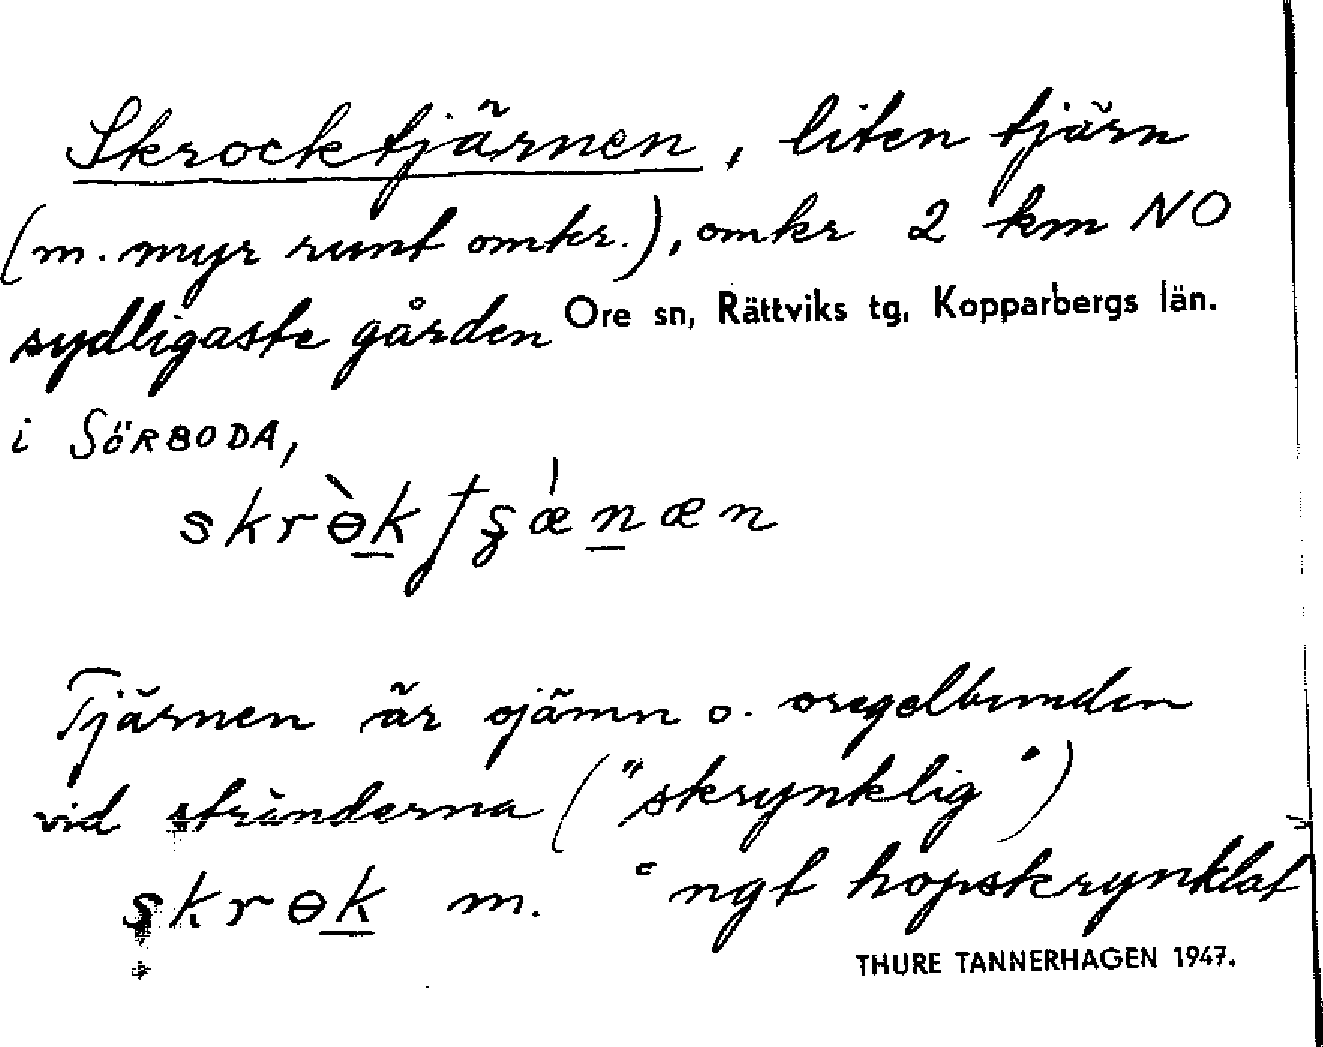 Skrocktjärnen, liten tjärn
(m. myr runt omkr.), omkr 2 km NO
sydligaste gården Ore sn, Rättviks tg, Kopparbergs län.
i SÖRBODA,
skrɵ̀kʃʂǽnæn
Tjärnen är ojämn o. oregelbunden
vid stränderna ("skrynklig")
skrɵk m. "ngt hopskrynklat
THURE TANNERHAGEN 1947.